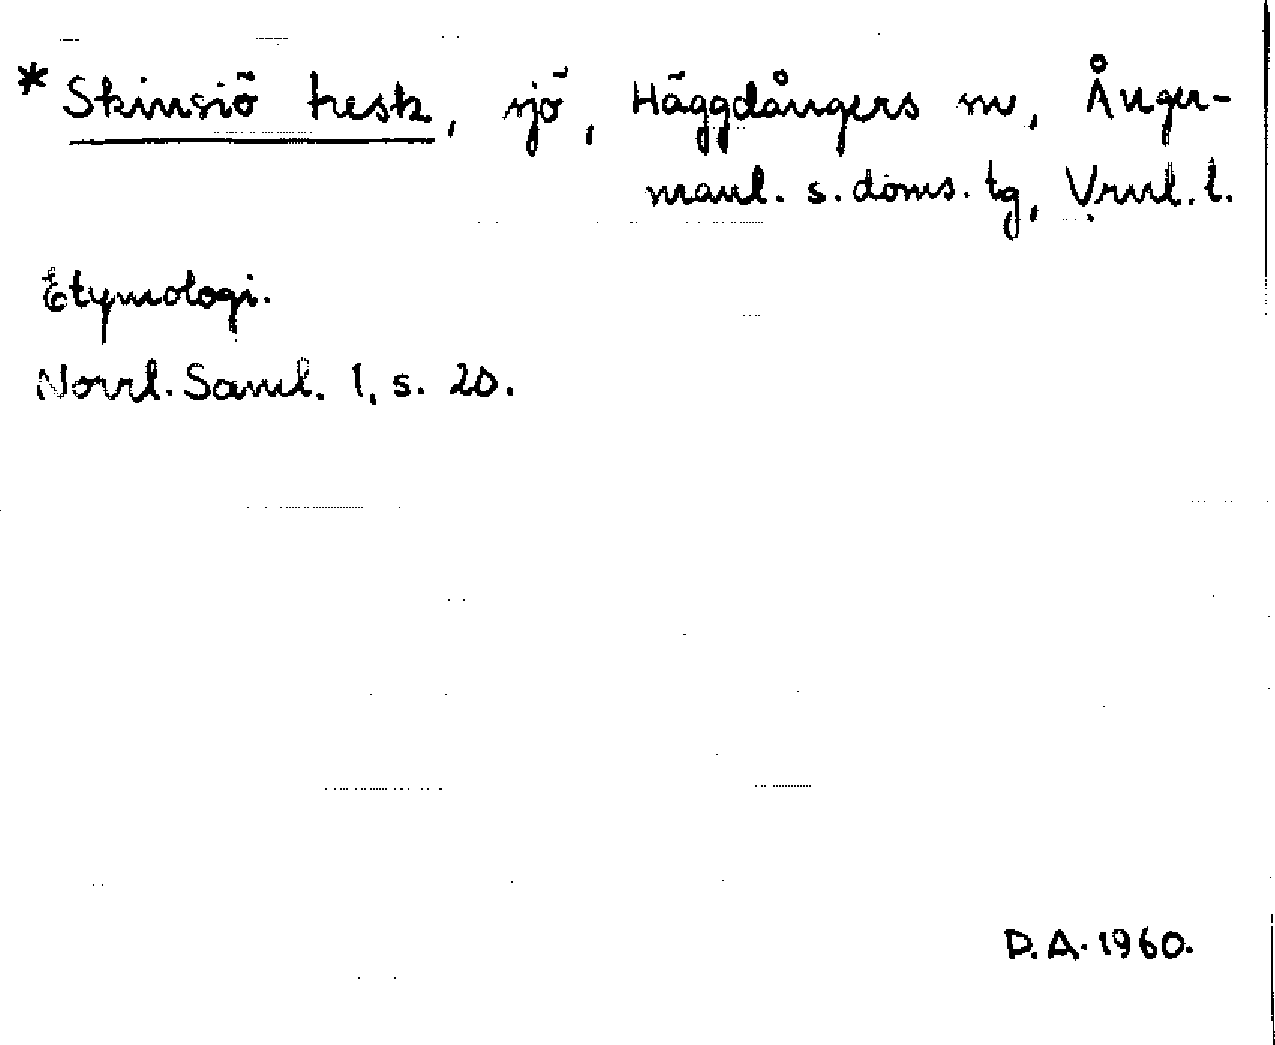 *Skinsiö tresk, sjö, Häggdångers sn, Ånger-
manl. s. doms. tg, Vrnl. l.
Etymologi.
Norrl. Saml. 1, s. 20.
D.A. 1960.